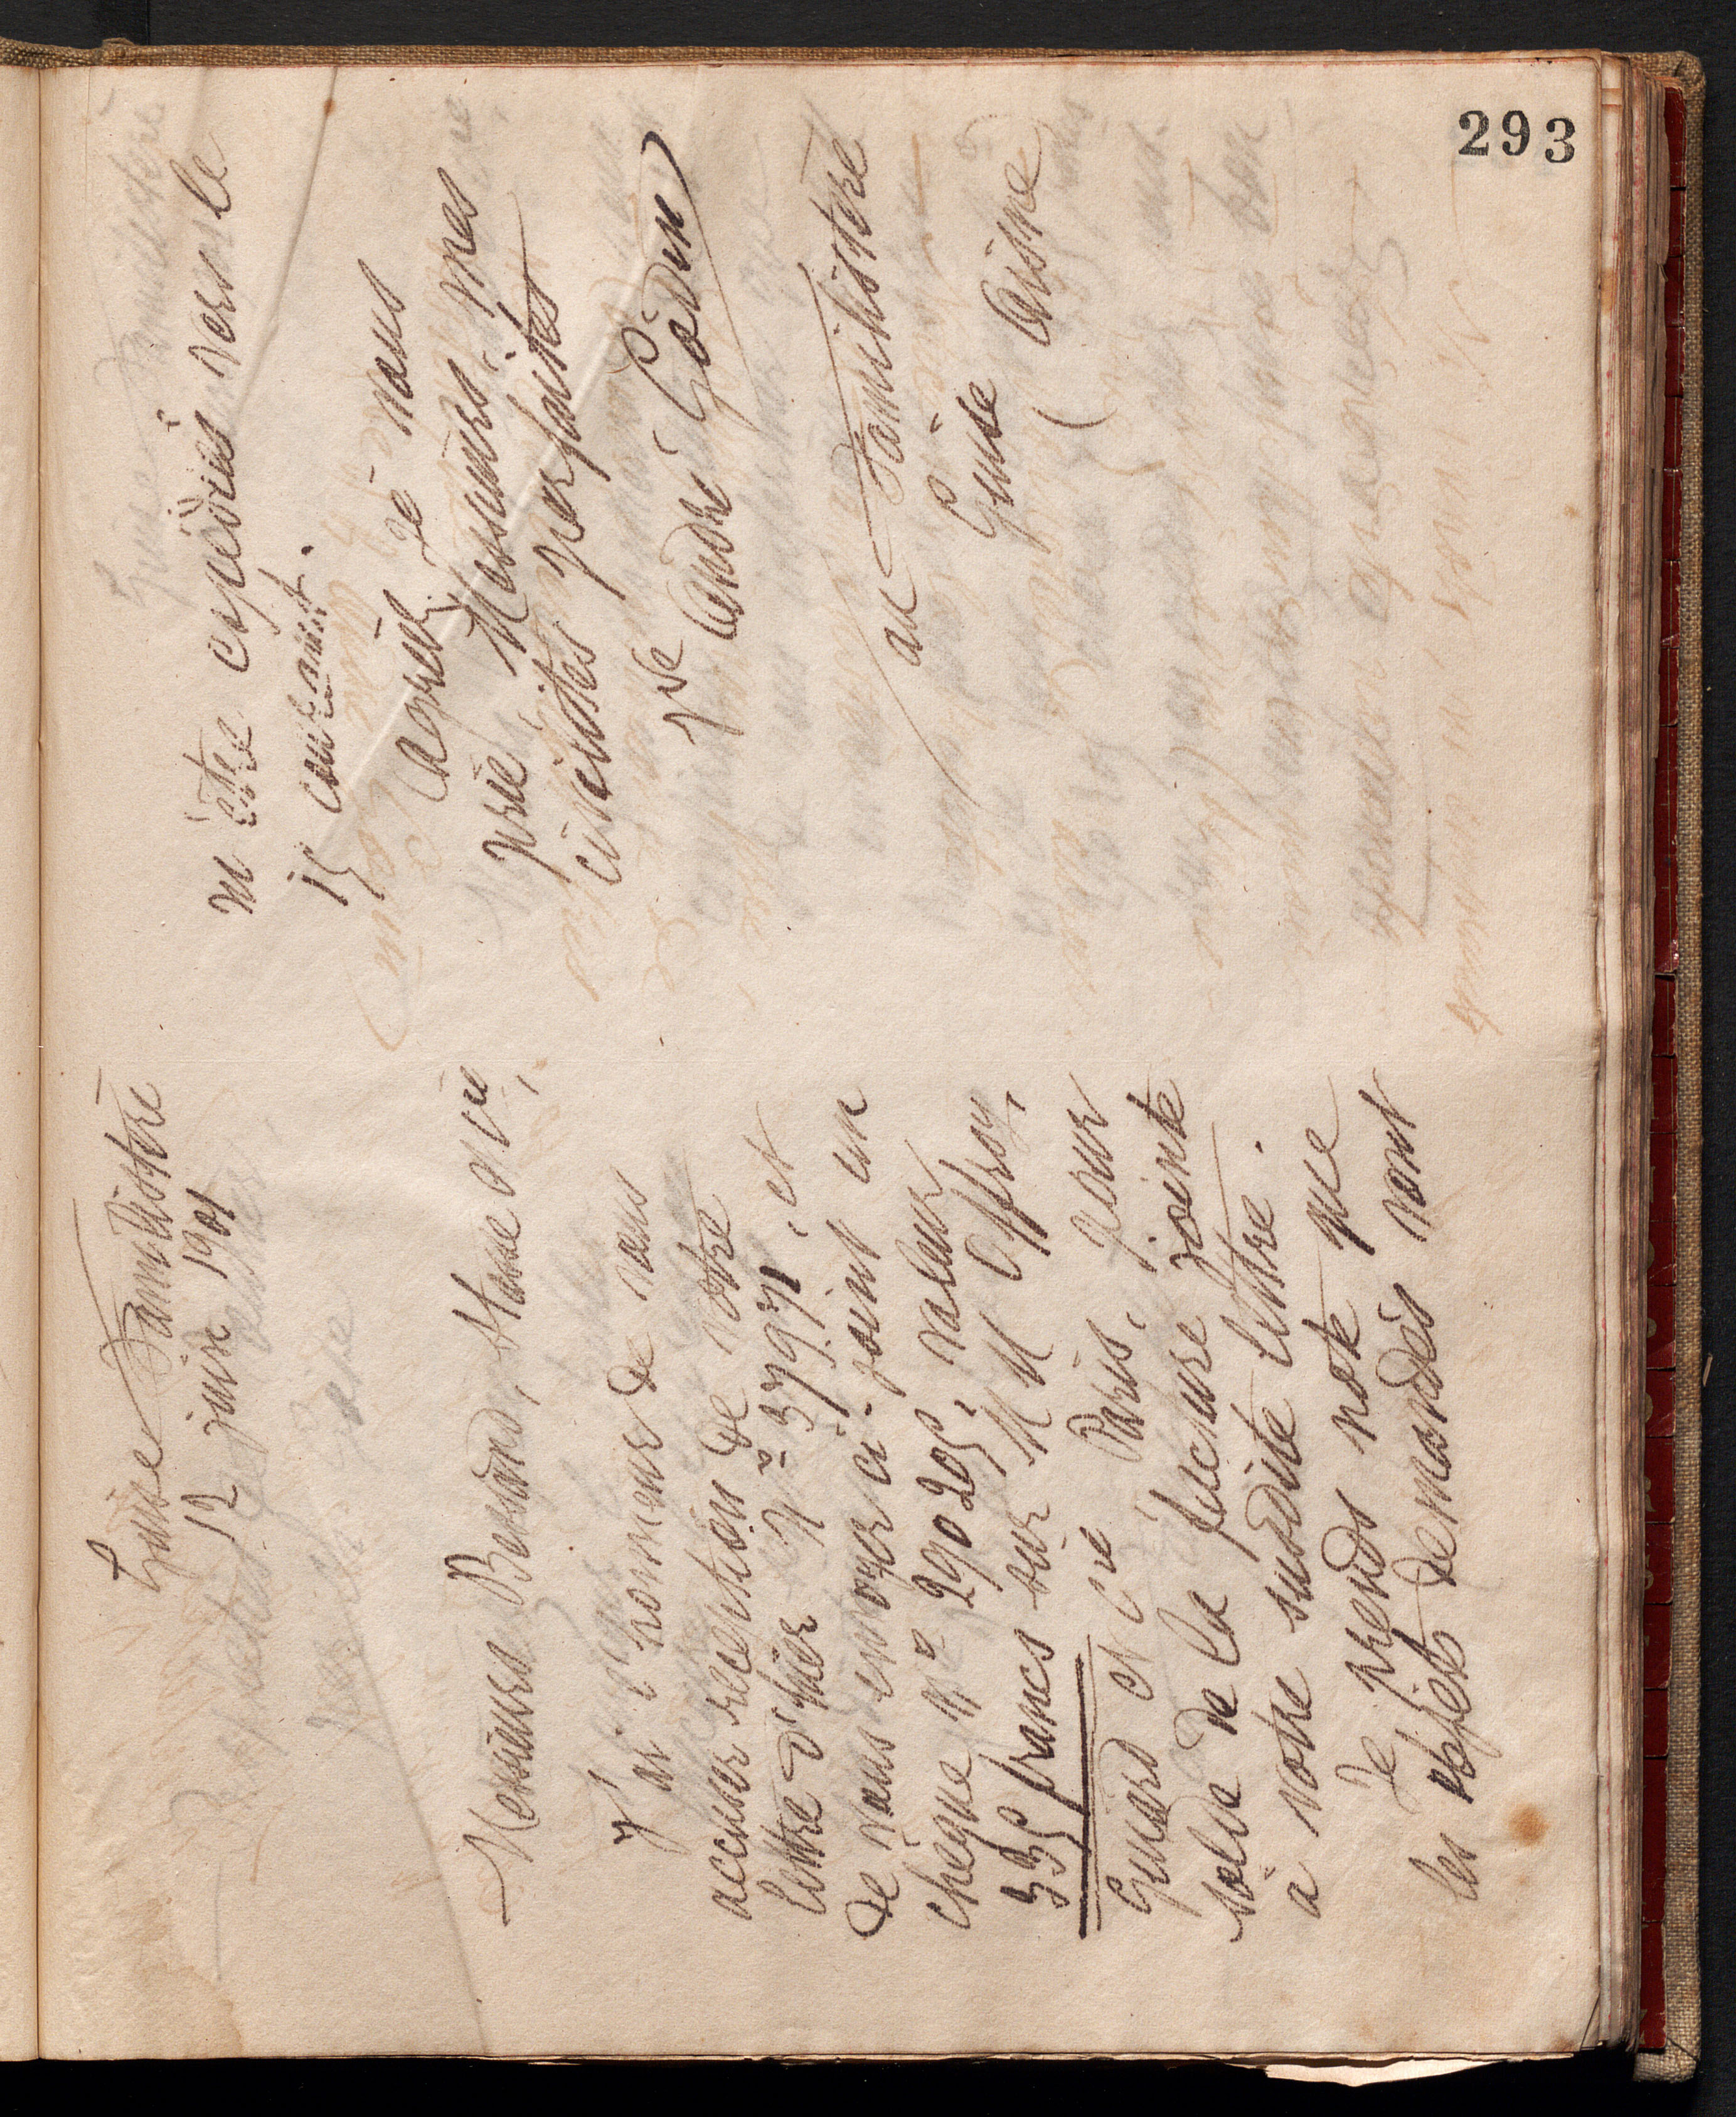 293
Guise Familistère
12 juin 1901
Messieurs Besand, Stasse & Cie,
J'ai l'honneur de vous
accuser réception de votre
lettre d'hier N° 37971, et
de vous envoyer ci-joint un
chèque n° 290205, valeur
335 francs sur MM Offroy,
Guiard et Cie Paris, pour
solde de la facture jointe
à votre susdite lettre.
Je prends note que
les objets demandés vont
m'être expédiés vers le
15 courant.
Agréez, je vous
prie, Messieurs, mes
civilités parfaites
Vve André Godin
au Familistère
Guise Aisne